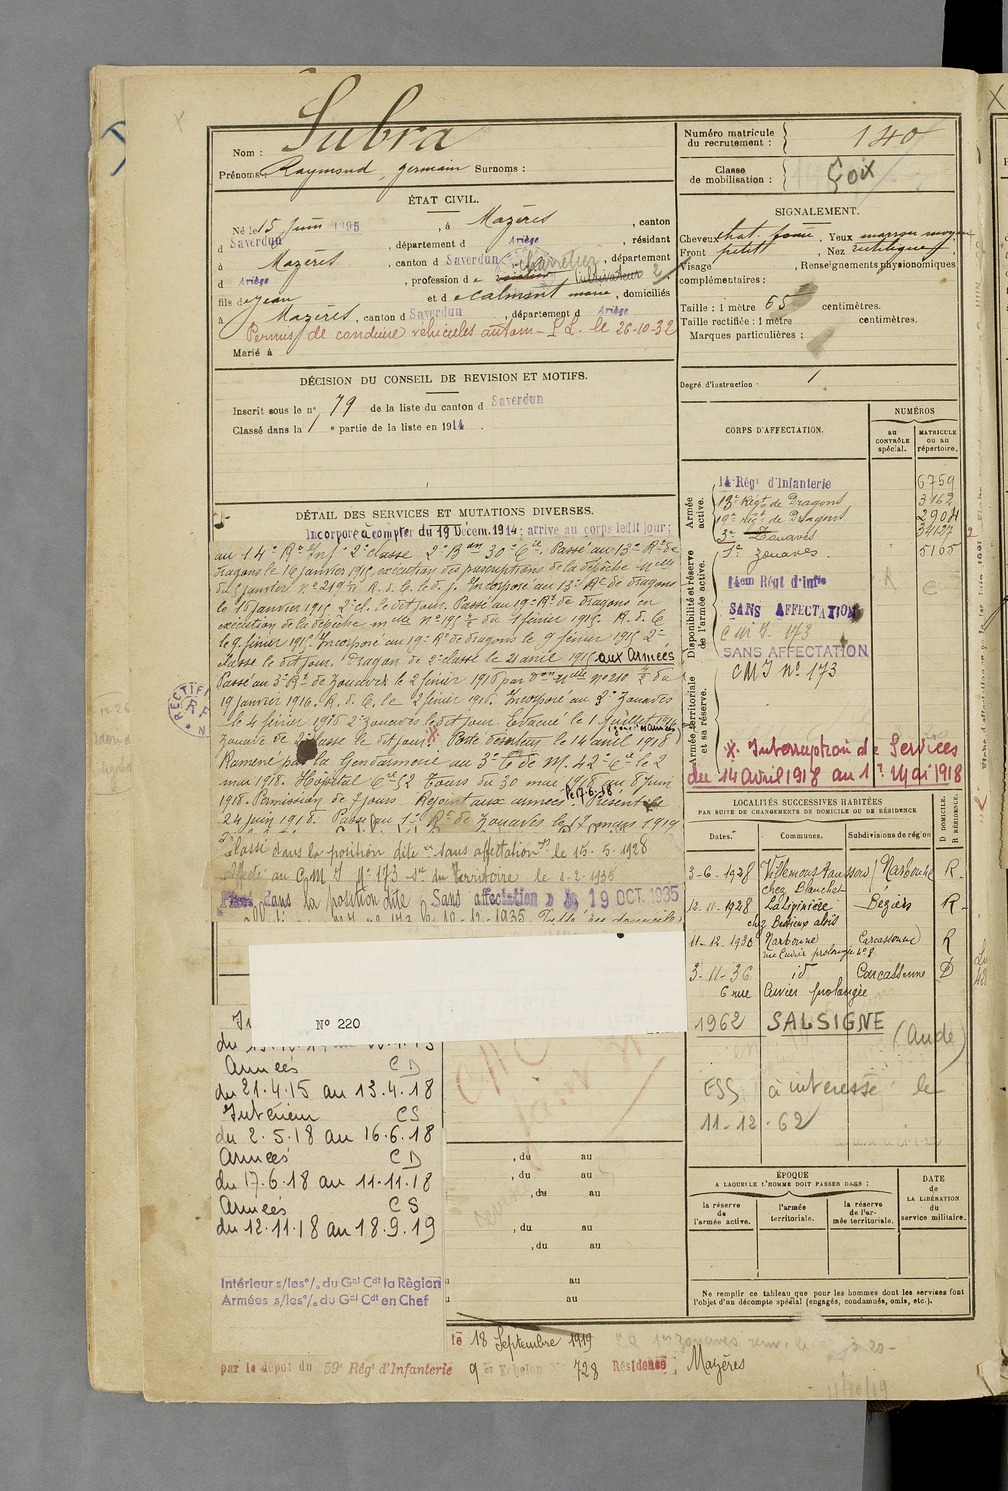 Nom : Subra
Prénoms : Raymond, germain Surnoms :
ÉTAT CIVIL.
Né le 15 Juin 1895, à Mazères, canton
d Saverdun, département d Ariège, résidant
à Mazères, canton d Saverdun, département
d Ariège, profession de cultivateur
fils de Jean et de Calmont marie, domiciliés
à Mazères, canton d Saverdun, département d Ariège
Permis de conduire véhicules autom- P.L. le 26-10-32
Marié à
DÉCISION DU CONSEIL DE REVISION ET MOTIFS.
Inscrit sous le n° 79 de la liste du canton d Saverdun
Classé dans la 1e partie de la liste en 1914.
DÉTAIL DES SERVICES ET MUTATIONS DIVERSES.
Incorporé à compter du 19 Décem. 1914; arrive au corps ledit jour;
au 14e Rt Inf. 2e classe 2e Bon 30e Cie. Passé au 13e Rt de
dragons le 16 janvier 1915, exécution des prescriptions de la dépêche
du 5 janvier R. d. C. le d. j. Incorporé au 13e Rt de dragons
le 16 janvier 1915 2e cl. le dit jour. Passé au 19e Rt de dragons en
exécution de la dépêche du 1 février 1915. R. d. C
le 9 février 1915. Incorporé au 19e Rt de dragons le 9 février 1915 2e
classe le dit jour. Dragon de 2e classe le 21 avril 1915 aux Armées
Passé au 3e Rt de Zouaves le 2 février 1916 par n° 210 du
19 janvier 1916. R. d. C. le 2 février 1916. Incorporé au 3e Zouaves
le 4 février 1916 2e Zouaves le dit jour. Evacué le 1 Juillet 1916
Zouave de 2e classe le dit jour. Porté déserteur le 14 avril 1918
Ramené par la Gendarmerie au 3e Tr de M. 42e Cie le 2
mai 1918. Hôpital Ct 52 Tours du 30 mai 1918 au 8 juin
1918. Permission de 7 jours. Rejoint aux armées le 17-6-18. Présent le
24 juin 1918. Passé au 1er Rt de Zouaves le 17 mars 1919
Classé dans la position dite "sans affectation" le 15-5-1928
Affecté au C M I N° 173 du Territoire le 1-2-1935
Placé dans la position dite Sans affectation 19 OCT. 1935
N° 220
Armées CD
du 21.4.15 au 13.4.18
Intérieur CS
du 2.5.18 au 16.6.18
Armées CD
du 17.6.18 au 11.11.18
Armées CS
du 12.11.18 au 18.9.19
, du au
, du au
, du au
, du au
, du au
au
au
Intérieur s/les °/. du Gal Cdt la Région
Armées s/les °/. du Gal Cdt en Chef
le 18 Septembre 1919
par le dépôt du 59e Régt d'Infanterie 9er Echelon N° 728 Résidence, Mazères
Numéro matricule
du recrutement : 140
Classe
de mobilisation : Foix
SIGNALEMENT.
Cheveux chat. foncé, Yeux marron moyen
Front petit, Nez rectiligne,
Visage , Renseignements physionomiques
complémentaires :
Taille : 1 mètre 65 centimètres.
Taille rectifiée : 1 mètre centimètres.
Marques particulières :
Degré d'instruction : 1
CORPS D'AFFECTATION.
NUMÉROS
au
CONTRÔLE
spécial.
MATRICULE
ou au
répertoire.
Armée
active.
14 Régt d'Infanterie 6759
13e Régt de Dragons 3162
19e Régt de Dragons 2904
3e Zouaves 34127
1er Zouaves. 5105
Disponibilité et réserve
de l'armée active.
14em Régt d'Infie
SANS AFFECTATION
C M I - 173
SANS AFFECTATION
CMI N° 173
Armée territoriale
et sa réserve.
* Interruption de Services
du 14 Avril 1918 au 1er Mai 1918
LOCALITÉS SUCCESSIVES HABITÉES
PAR SUITE DE CHANGEMENTS DE DOMICILE OU DE RÉSIDENCE
Dates. Communes. Subdivisions de région
D DOMICILE.
R RÉSIDENCE.
3-6-1928 Villemoustaussou Narbonne R.
chez Blanchet
12-11-1928 La Lipinière Béziers R.
chez Bessieux aloïs
11-12-1930 Narbonne Carcassonne R
rue Cuvier prolongée n° 8
3-11-36 id Carcassonne D
6 rue Cuvier prolongée
1962 SALSIGNE (Aude)
ESS à interessé le
11-12-62
ÉPOQUE
A LAQUELLE L'HOMME DOIT PASSER DANS :
la réserve
de
l'armée active.
l'armée
territoriale.
la réserve
de l'ar-
mée territoriale.
DATE
de
LA LIBÉRATION
du
service militaire.
Ne remplir ce tableau que pour les hommes dont les services font
l'objet d'un décompte spécial (engagés, condamnés, omis, etc.).